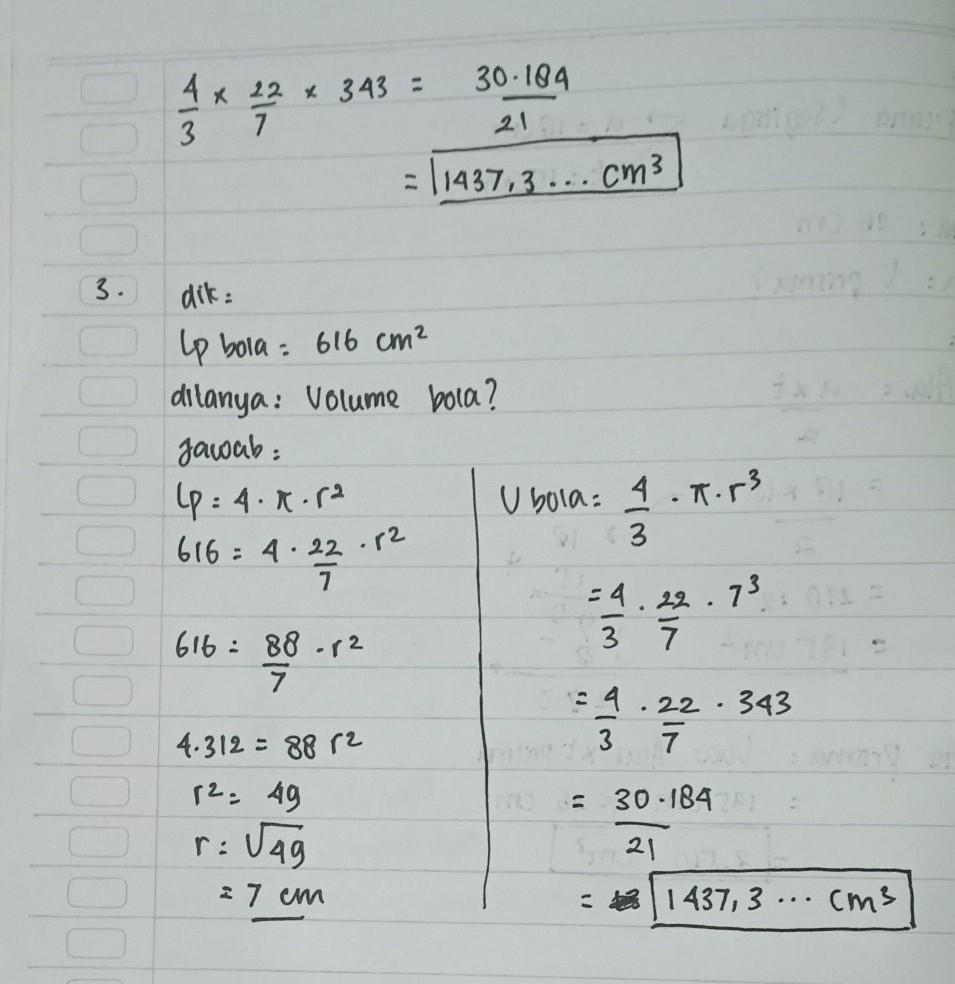 4/3 × 22/7 × 343 = 30.184/21
= 1437,3 ... cm³
3. dik:
Lp bola = 616 cm²
ditanya: Volume bola?
Jawab:
Lp = 4 · π · r²
616 = 4 · 22/7 · r²
616 = 88/7 · r²
4.312 = 88 r²
r² = 49
r = √49
= 7 cm
V bola = 4/3 · π · r³
= 4/3 · 22/7 · 7³
= 4/3 · 22/7 · 343
= 30.184/21
= 1437,3 ... cm³